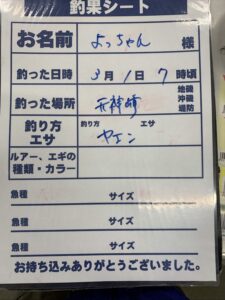 釣果シート
お名前 よっちゃん 様
釣った日時 3月1日7時頃
釣った場所 天神崎 地磯 沖磯 堤防
釣り方 エサ 釣り方 ヤエン エサ
ルアー、エギの種類・カラー
魚種 サイズ
魚種 サイズ
魚種 サイズ
お持ち込みありがとうございました。